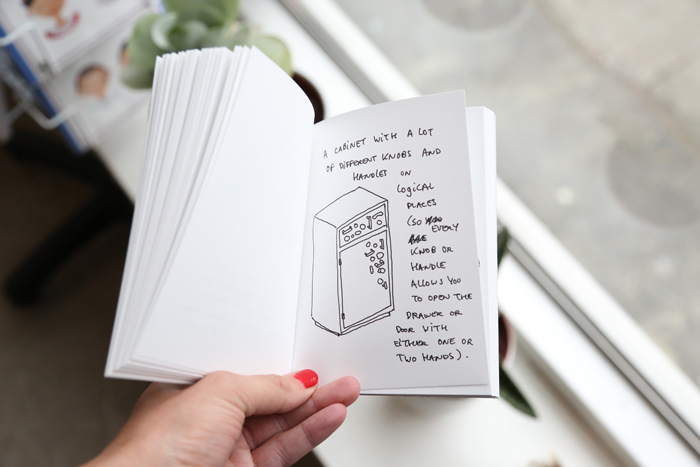 A CABINET WITH A LOT
OF DIFFERENT KNOBS AND
HANDLES ON
LOGICAL
PLACES
(SO
EVERY
KNOB OR
HANDLE
ALLOWS YOU
TO OPEN THE
DRAWER OR
DOOR WITH
EITHER ONE OR
TWO HANDS).